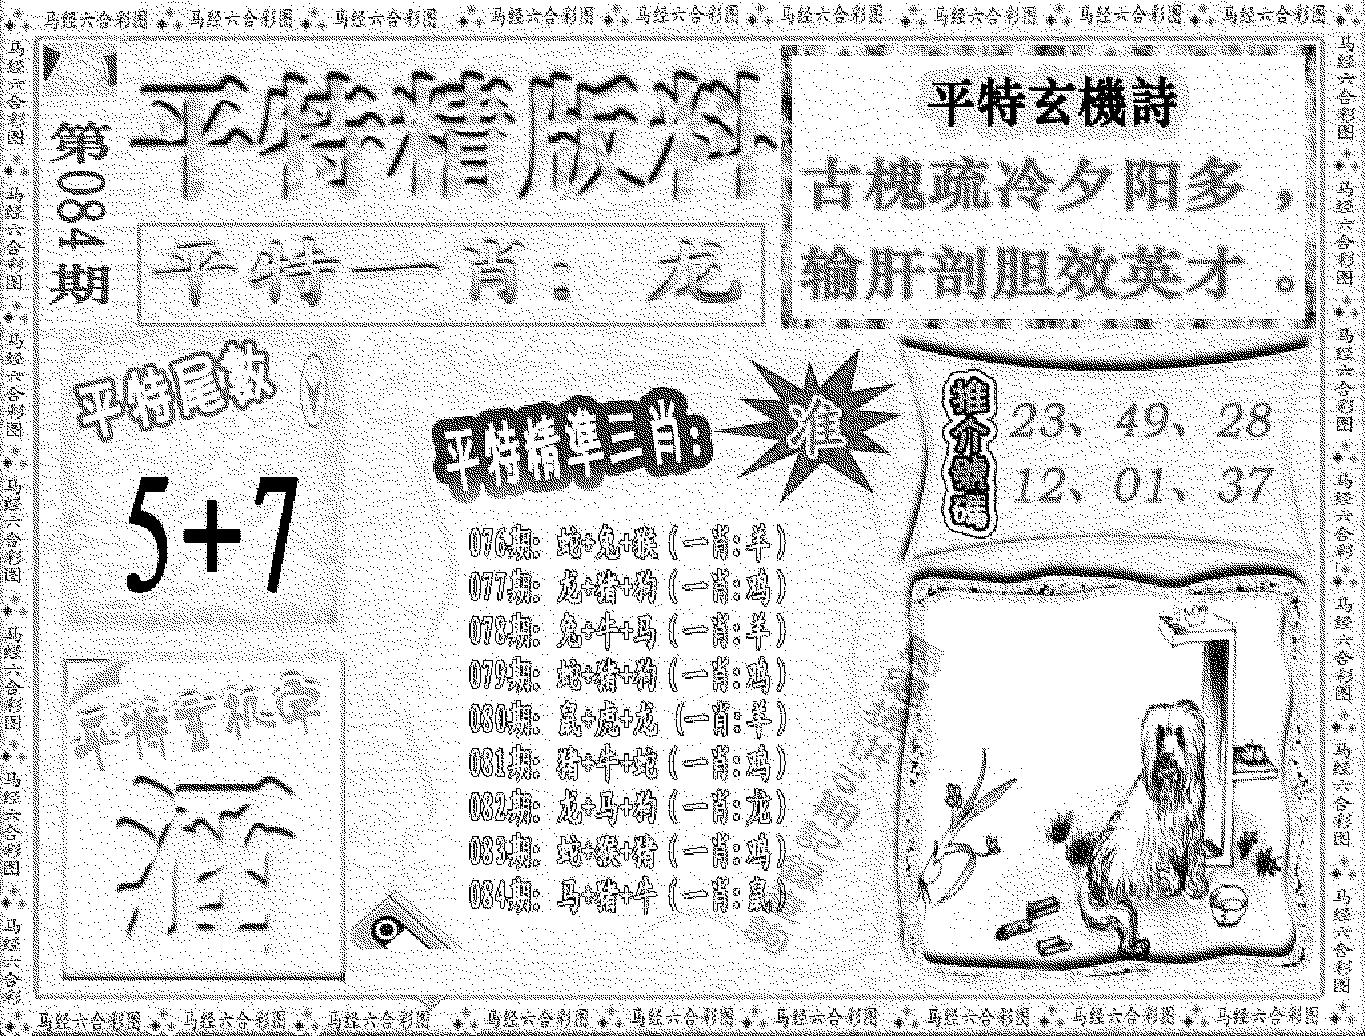 马经六合彩图 马经六合彩图 马经六合彩图 马经六合彩图 马经六合彩图 马经六合彩图 马经六合彩图 马经六合彩图 马经六合彩图
第084期
平特精版料
平特一肖：龙
平特玄機詩
古槐疏冷夕阳多，
输肝剖胆效英才。
平特尾数
5+7
平特精準三肖:
准
076期: 蛇+兔+猴(一肖:羊)
077期: 龙+猪+狗(一肖:鸡)
078期: 兔+牛+马(一肖:羊)
079期: 蛇+猪+狗(一肖:鸡)
080期: 鼠+虎+龙(一肖:羊)
081期: 猪+牛+蛇(一肖:鸡)
082期: 龙+马+狗(一肖:龙)
083期: 蛇+猴+猪(一肖:鸡)
084期: 马+猪+牛(一肖:鼠)
23、49、28
12、01、37
马经六合彩图 马经六合彩图 马经六合彩图 马经六合彩图 马经六合彩图 马经六合彩图 马经六合彩图 马经六合彩图 马经六合彩图